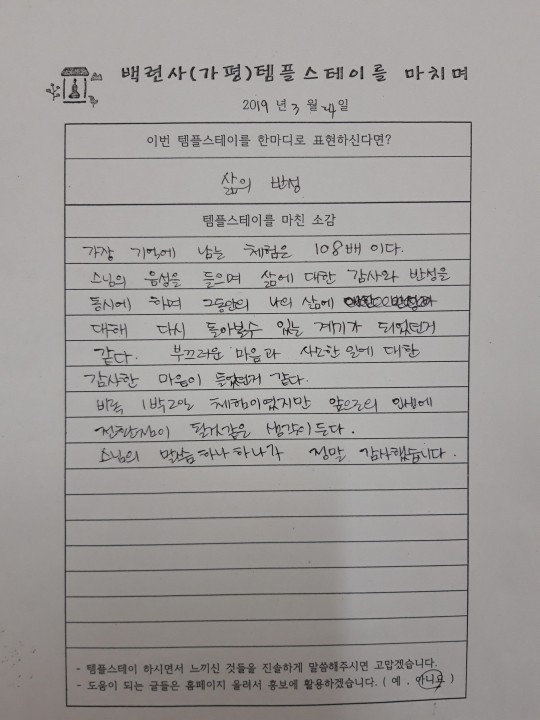 백련사(가평)템플스테이를 마치며
2019 년 3 월 24 일
이번 템플스테이를 한마디로 표현하신다면?
삶의 반성
템플스테이를 마친 소감
가장 기억에 남는 체험은 108배 이다.
스님의 음성을 들으며 삶에 대한 감사와 반성을
동시에 하며 그동안의 나의 삶에
대해 다시 돌아볼수 있는 계기가 되었던거
같다. 부끄러운 마음과 사소한 일에 대한
감사한 마음이 들었던거 같다.
비록 1박2일 체험이였지만 앞으로의 인생에
전환점이 될거같은 생각이 든다.
스님의 말씀 하나 하나가 정말 감사했습니다.
- 템플스테이 하시면서 느끼신 것들을 진솔하게 말씀해주시면 고맙겠습니다.
- 도움이 되는 글들은 홈페이지 올려서 홍보에 활용하겠습니다. ( 예 , 아니요 )